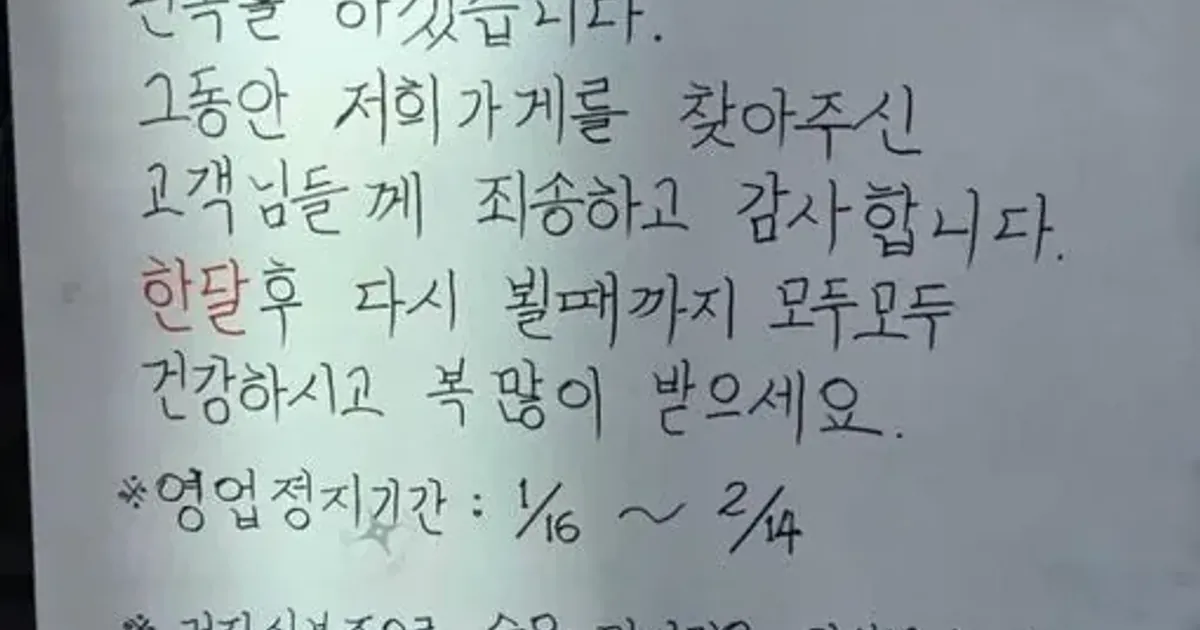 하겠습니다.
그동안 저희가게를 찾아주신
고객님들께 죄송하고 감사합니다.
한달후 다시 뵐때까지 모두모두
건강하시고 복 많이 받으세요.
※영업정지기간 : 1/16 ~ 2/14